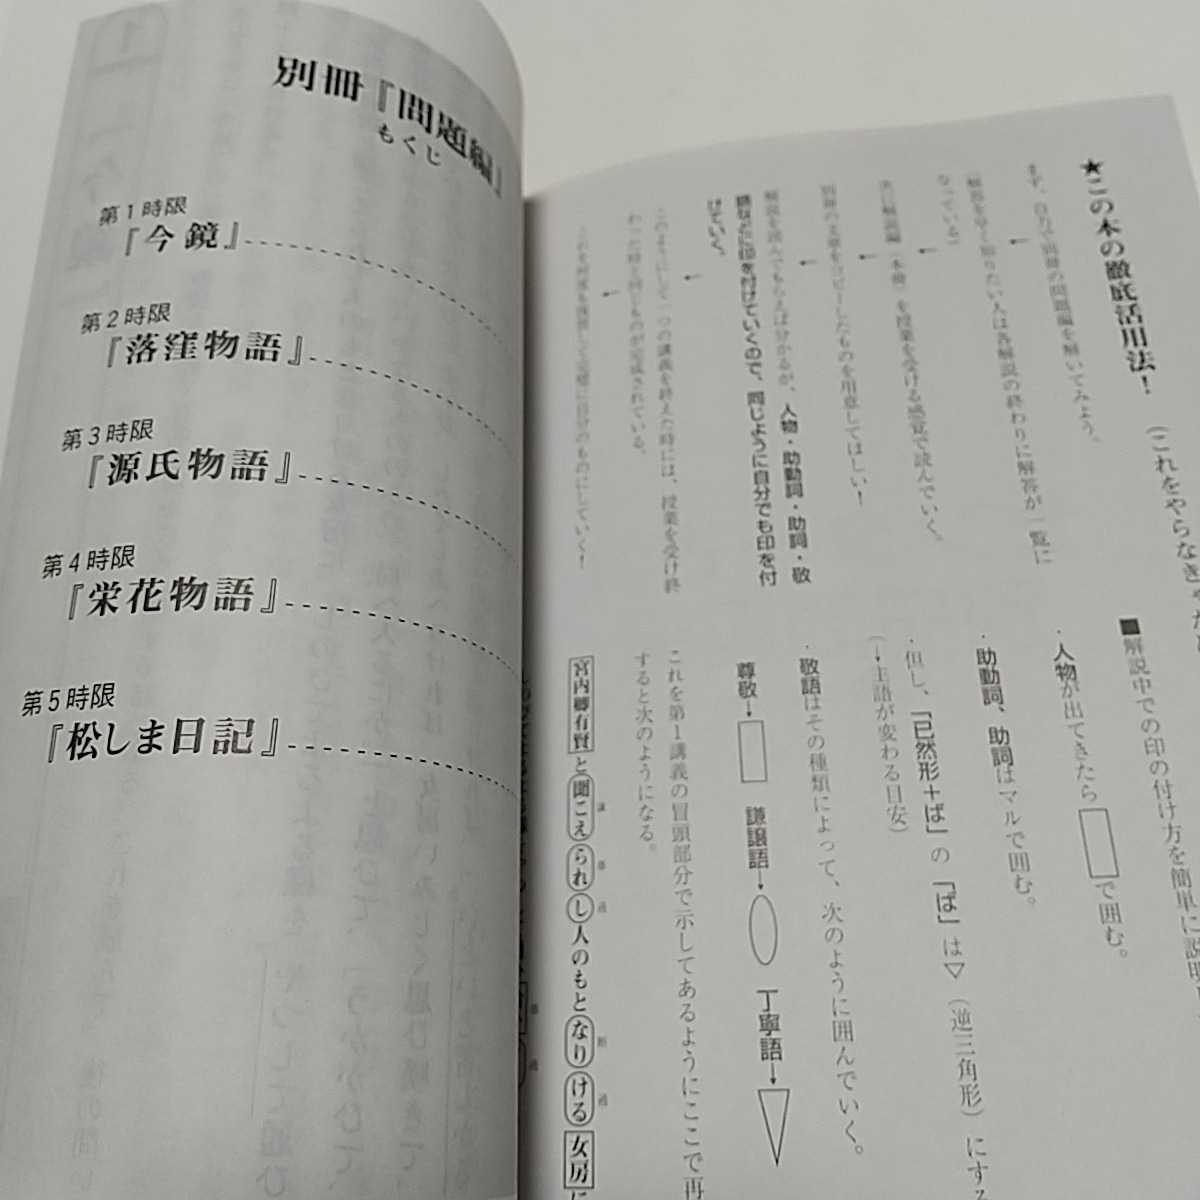 別冊『問題編』
もくじ
第1時限
『今鏡』
第2時限
『落窪物語』
第3時限
『源氏物語』
第4時限
『栄花物語』
第5時限
『松しま日記』
★この本の徹底活用法！（これをやらなきゃ
まず、自力で別冊の問題編を解いてみよう。
↓
解答を早く知りたい人は各解説の終わりに解答が一覧に
なっている
↓
次に解説編（本冊）を授業を受ける感覚で読んでいく。
↓
別冊の文章をコピーしたものを用意してほしい！
↓
解説を読んでもらえば分かるが、人物・助動詞・助詞・敬
語などに印を付けていくので、同じように自分でも印を付
けていく。
↓
このようにして一つの講義を終えた時には、授業を受け終
わった時と同じものが完成されている。
↓
これを何度も復習して完璧に自分のものにしていく！
■解説中での印の付け方を簡単に説明
・人物が出てきたら□で囲む。
・助動詞、助詞はマルで囲む。
・但し、「已然形＋ば」の「ば」は▽（逆三角形）にす
（→主語が変わる目安）
・敬語はその種類によって、次のように囲んでいく。
尊敬→ 謙譲語→ 丁寧語→
これを第1講義の冒頭部分で示してあるようにここで再
すると次のようになる。
宮内卿有賢と聞こえられし人のもとなりける女房に